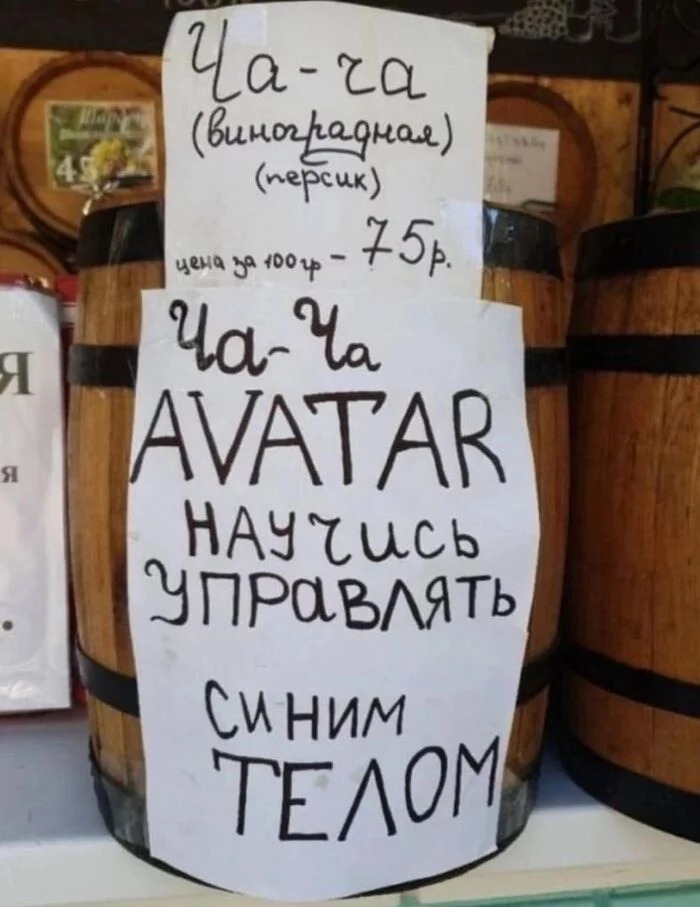 Ча-ча
(виноградная)
(персик)
цена за 100гр - 75р.
Ча-Ча
AVATAR
НАУЧИСЬ
УПРАВЛЯТЬ
СИНИМ
ТЕЛОМ
Я
я